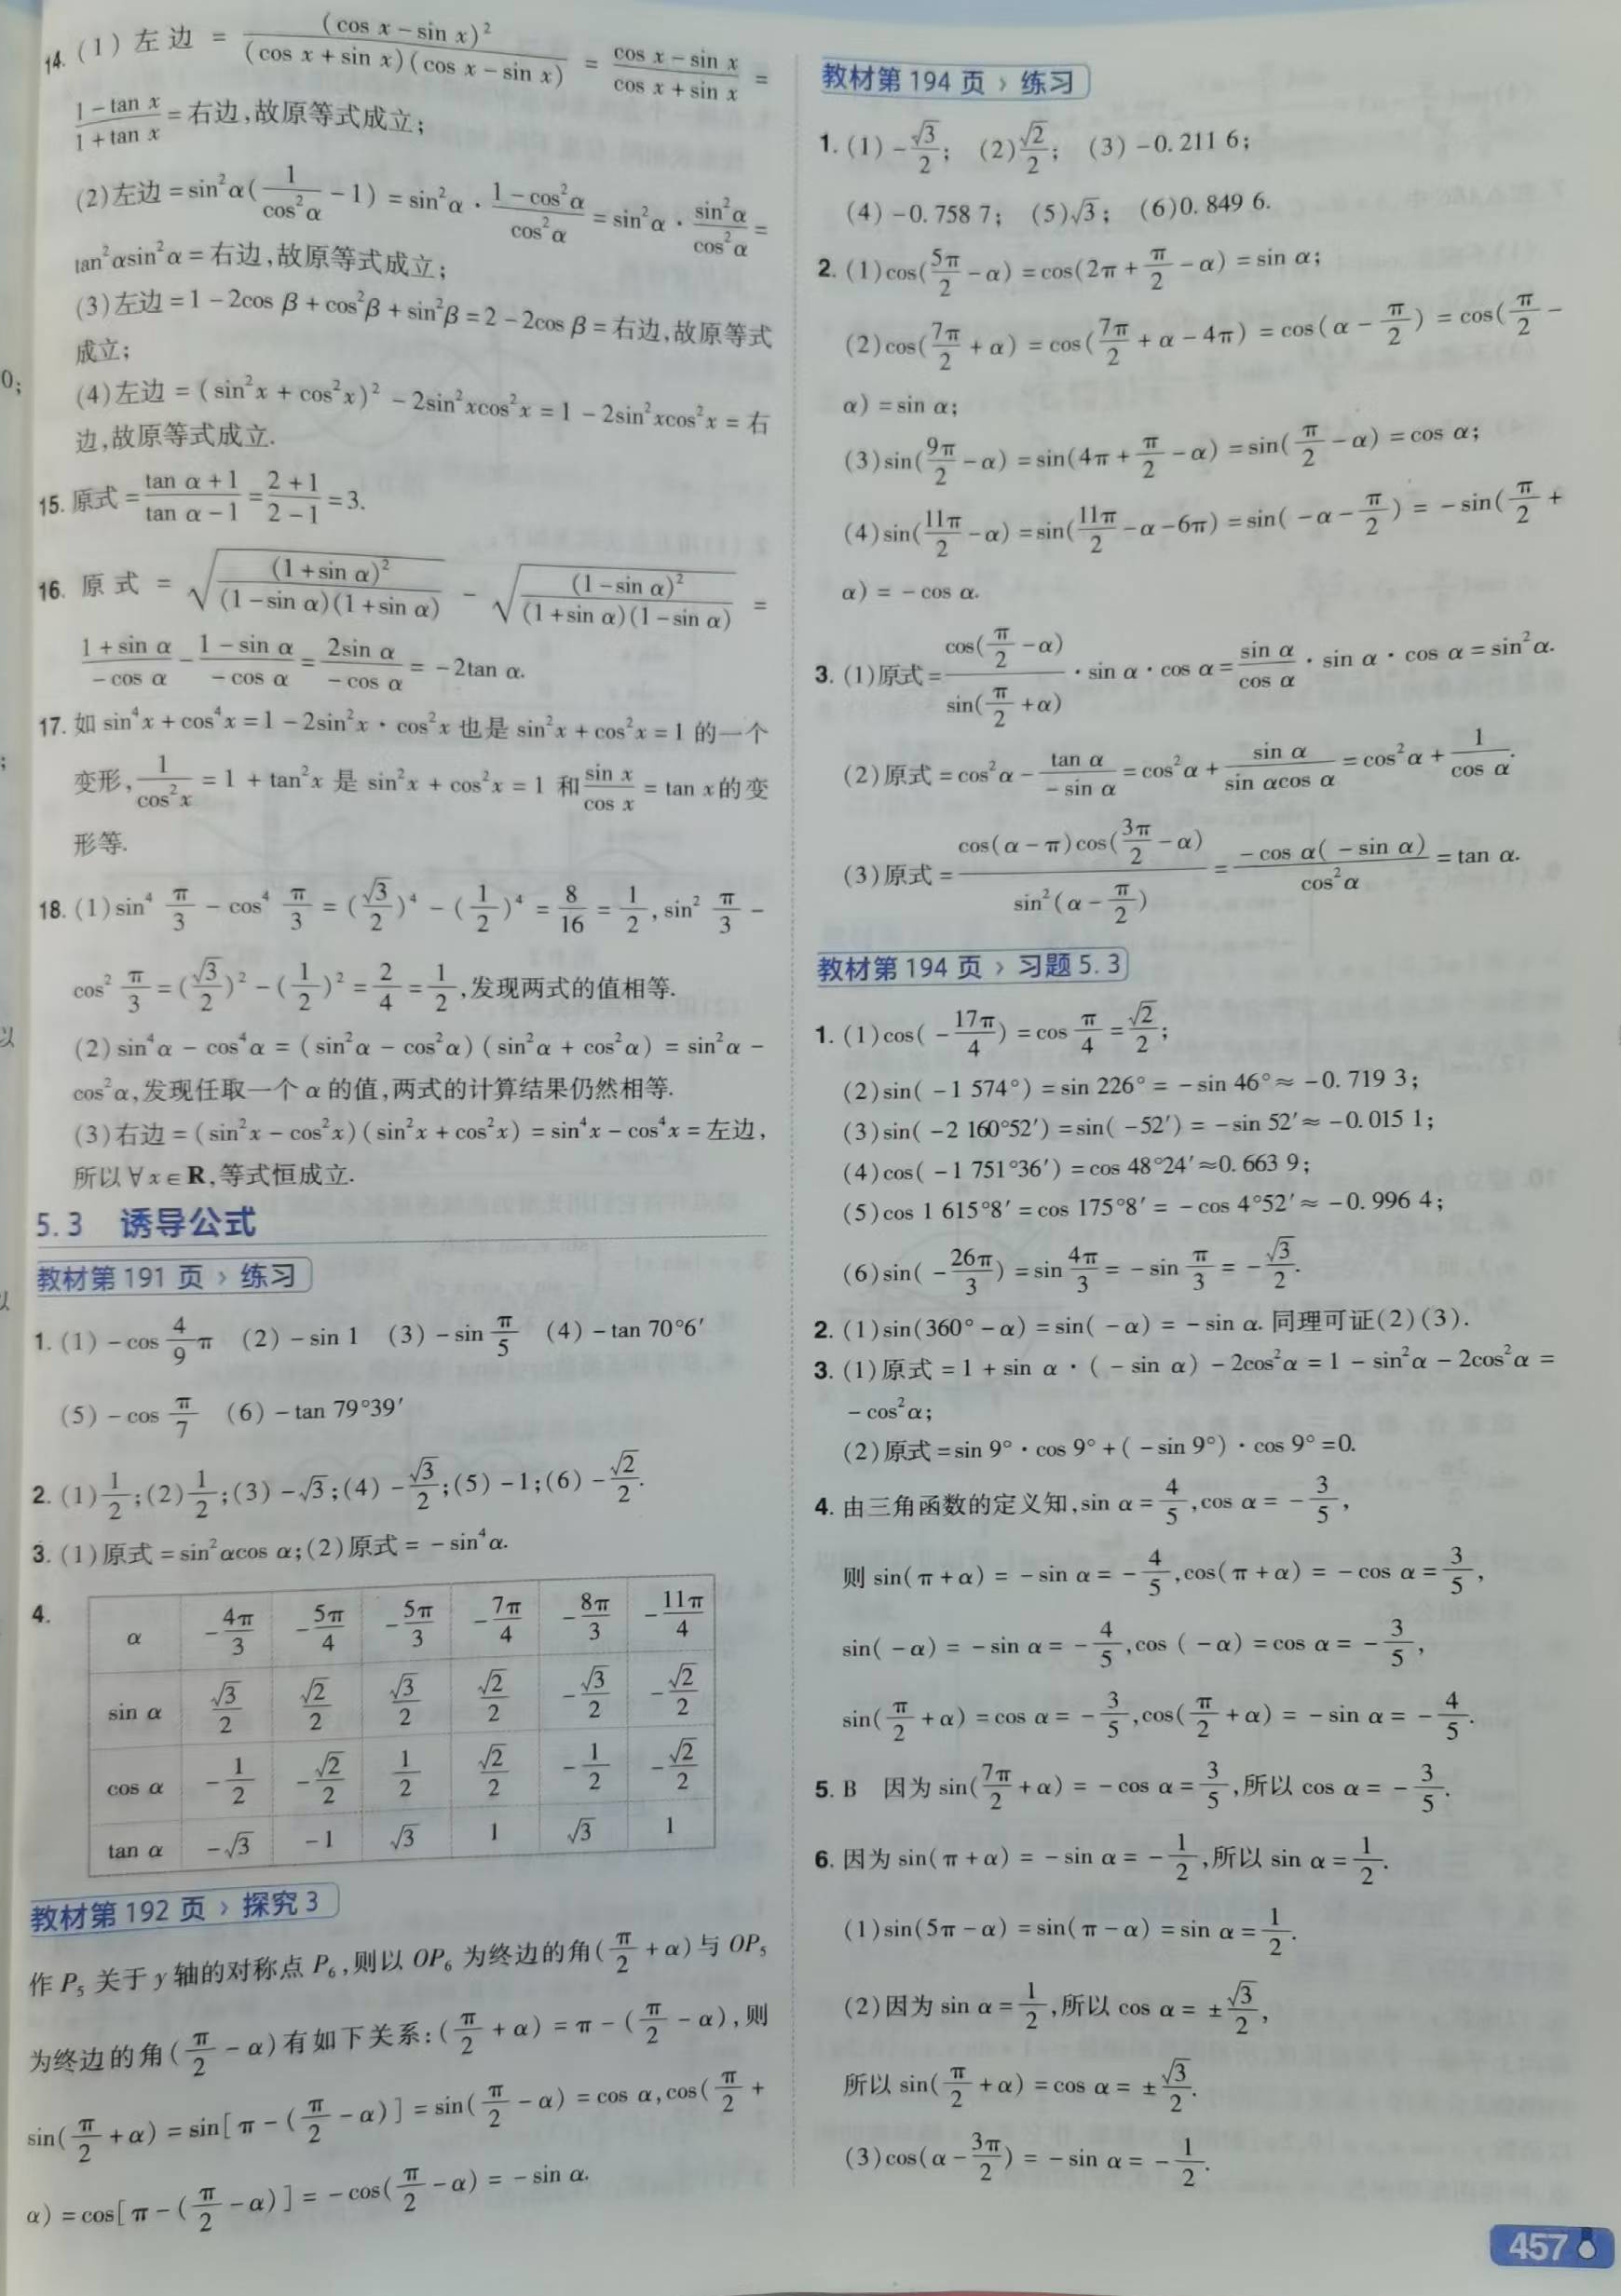 14. (1) 左边 = (cos x - sin x)² / (cos x + sin x)(cos x - sin x) = (cos x - sin x)/(cos x + sin x) =
(1 - tan x)/(1 + tan x) = 右边,故原等式成立;
(2)左边 = sin²α(1/cos²α - 1) = sin²α · (1 - cos²α)/cos²α = sin²α · sin²α/cos²α =
tan²αsin²α = 右边,故原等式成立;
(3)左边 = 1 - 2cos β + cos²β + sin²β = 2 - 2cos β = 右边,故原等式
成立;
(4)左边 = (sin²x + cos²x)² - 2sin²xcos²x = 1 - 2sin²xcos²x = 右
边,故原等式成立.
15. 原式 = (tan α + 1)/(tan α - 1) = (2 + 1)/(2 - 1) = 3.
16. 原式 = √((1 + sin α)²/(1 - sin α)(1 + sin α)) - √((1 - sin α)²/(1 + sin α)(1 - sin α)) =
(1 + sin α)/(-cos α) - (1 - sin α)/(-cos α) = 2sin α/(-cos α) = -2tan α.
17. 如 sin⁴x + cos⁴x = 1 - 2sin²x · cos²x 也是 sin²x + cos²x = 1 的一个
变形, 1/cos²x = 1 + tan²x 是 sin²x + cos²x = 1 和 sin x/cos x = tan x的变
形等.
18. (1) sin⁴ π/3 - cos⁴ π/3 = (√3/2)⁴ - (1/2)⁴ = 8/16 = 1/2, sin² π/3 -
cos² π/3 = (√3/2)² - (1/2)² = 2/4 = 1/2,发现两式的值相等.
(2) sin⁴α - cos⁴α = (sin²α - cos²α)(sin²α + cos²α) = sin²α -
cos²α,发现任取一个 α 的值,两式的计算结果仍然相等.
(3)右边 = (sin²x - cos²x)(sin²x + cos²x) = sin⁴x - cos⁴x = 左边,
所以∀x∈R,等式恒成立.
5.3 诱导公式
教材第 191 页 › 练习
1. (1) -cos 4/9 π (2) -sin 1 (3) -sin π/5 (4) -tan 70°6′
(5) -cos π/7 (6) -tan 79°39′
2. (1) 1/2;(2) 1/2;(3) -√3;(4) -√3/2;(5) -1;(6) -√2/2.
3. (1)原式 = sin²αcos α;(2)原式 = -sin⁴α.
4.
α -4π/3 -5π/4 -5π/3 -7π/4 -8π/3 -11π/4
sin α √3/2 √2/2 √3/2 √2/2 -√3/2 -√2/2
cos α -1/2 -√2/2 1/2 √2/2 -1/2 -√2/2
tan α -√3 -1 √3 1 √3 1
教材第 192 页 › 探究 3
作 P₅ 关于 y 轴的对称点 P₆,则以 OP₆ 为终边的角(π/2 + α)与 OP₅
为终边的角(π/2 - α)有如下关系:(π/2 + α) = π - (π/2 - α),则
sin(π/2 + α) = sin[π - (π/2 - α)] = sin(π/2 - α) = cos α,cos(π/2 +
α) = cos[π - (π/2 - α)] = -cos(π/2 - α) = -sin α.
教材第 194 页 › 练习
1. (1) -√3/2; (2) √2/2; (3) -0.211 6;
(4) -0.758 7; (5)√3; (6)0.849 6.
2. (1)cos(5π/2 - α) = cos(2π + π/2 - α) = sin α;
(2)cos(7π/2 + α) = cos(7π/2 + α - 4π) = cos(α - π/2) = cos(π/2 -
α) = sin α;
(3)sin(9π/2 - α) = sin(4π + π/2 - α) = sin(π/2 - α) = cos α;
(4)sin(11π/2 - α) = sin(11π/2 - α - 6π) = sin(-α - π/2) = -sin(π/2 +
α) = -cos α.
3. (1)原式 = cos(π/2 - α)/sin(π/2 + α) · sin α · cos α = sin α/cos α · sin α · cos α = sin²α.
(2)原式 = cos²α - tan α/(-sin α) = cos²α + sin α/(sin αcos α) = cos²α + 1/cos α.
(3)原式 = cos(α - π)cos(3π/2 - α)/sin²(α - π/2) = -cos α(-sin α)/cos²α = tan α.
教材第 194 页 › 习题 5.3
1. (1)cos(-17π/4) = cos π/4 = √2/2;
(2)sin(-1 574°) = sin 226° = -sin 46° ≈ -0.719 3;
(3)sin(-2 160°52′) = sin(-52′) = -sin 52′ ≈ -0.015 1;
(4)cos(-1 751°36′) = cos 48°24′ ≈ 0.663 9;
(5)cos 1 615°8′ = cos 175°8′ = -cos 4°52′ ≈ -0.996 4;
(6)sin(-26π/3) = sin 4π/3 = -sin π/3 = -√3/2.
2. (1)sin(360° - α) = sin(-α) = -sin α. 同理可证(2)(3).
3. (1)原式 = 1 + sin α · (-sin α) - 2cos²α = 1 - sin²α - 2cos²α =
-cos²α;
(2)原式 = sin 9° · cos 9° + (-sin 9°) · cos 9° = 0.
4. 由三角函数的定义知,sin α = 4/5,cos α = -3/5,
则 sin(π + α) = -sin α = -4/5,cos(π + α) = -cos α = 3/5,
sin(-α) = -sin α = -4/5,cos (-α) = cos α = -3/5,
sin(π/2 + α) = cos α = -3/5,cos(π/2 + α) = -sin α = -4/5.
5. B 因为 sin(7π/2 + α) = -cos α = 3/5,所以 cos α = -3/5.
6. 因为 sin(π + α) = -sin α = -1/2,所以 sin α = 1/2.
(1)sin(5π - α) = sin(π - α) = sin α = 1/2.
(2)因为 sin α = 1/2,所以 cos α = ±√3/2,
所以 sin(π/2 + α) = cos α = ±√3/2.
(3)cos(α - 3π/2) = -sin α = -1/2.
457